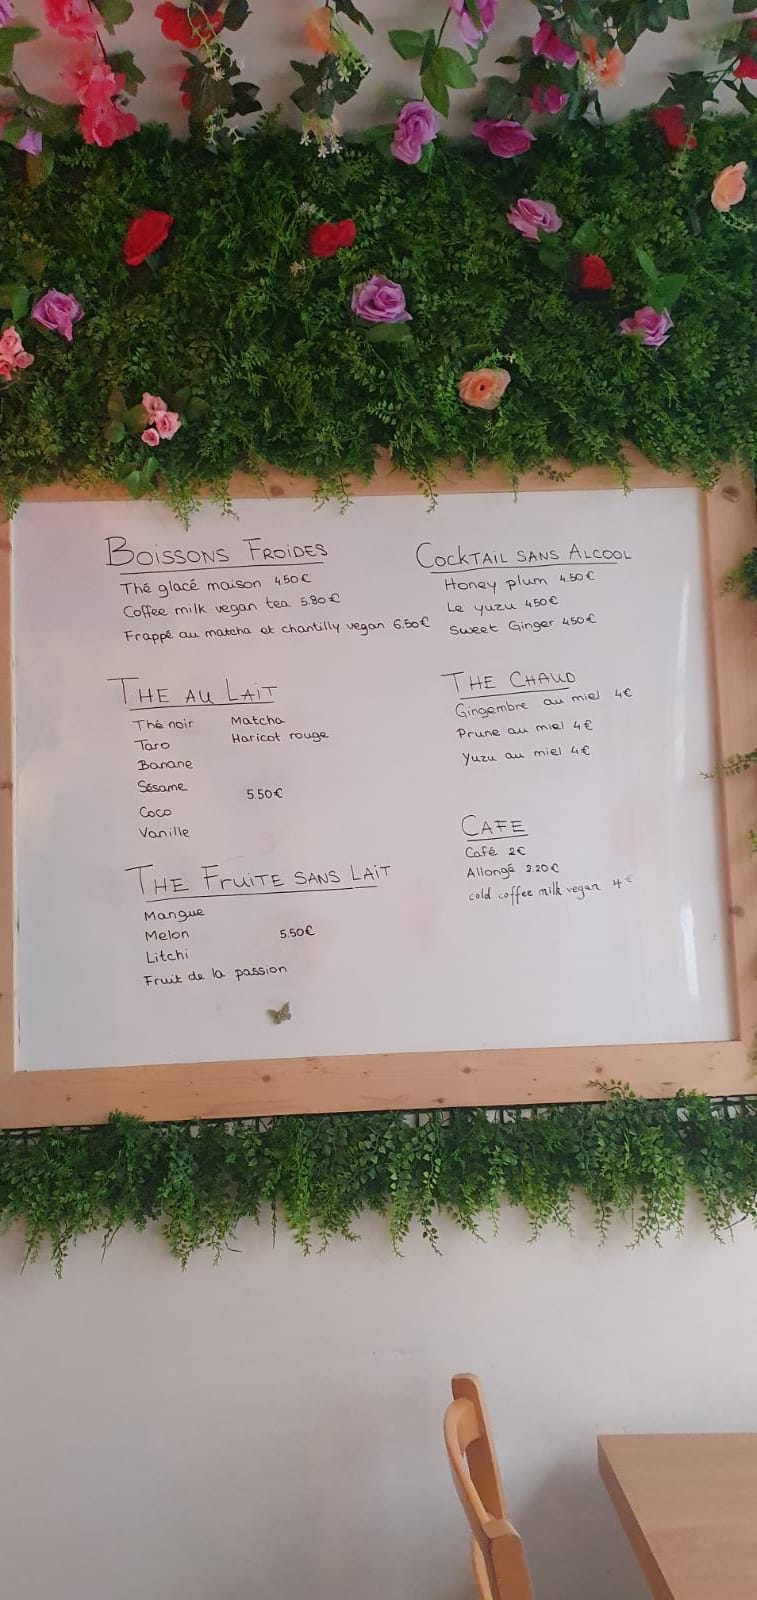 BOISSONS FROIDES
Thé glacé maison 4.50€
Coffee milk vegan tea 5.80€
Frappé au matcha et chantilly vegan 6.50€
THE AU LAIT
Thé noir
Taro
Banane
Sésame
Coco
Vanille
Matcha
Haricot rouge
5.50€
THE FRUITE SANS LAIT
Mangue
Melon
Litchi
Fruit de la passion
5.50€
COCKTAIL SANS ALCOOL
Honey plum 4.50€
Le yuzu 4.50€
Sweet Ginger 4.50€
THE CHAUD
Gingembre au miel 4€
Prune au miel 4€
Yuzu au miel 4€
CAFE
Café 2€
Allongé 2.20€
cold coffee milk vegan 4€